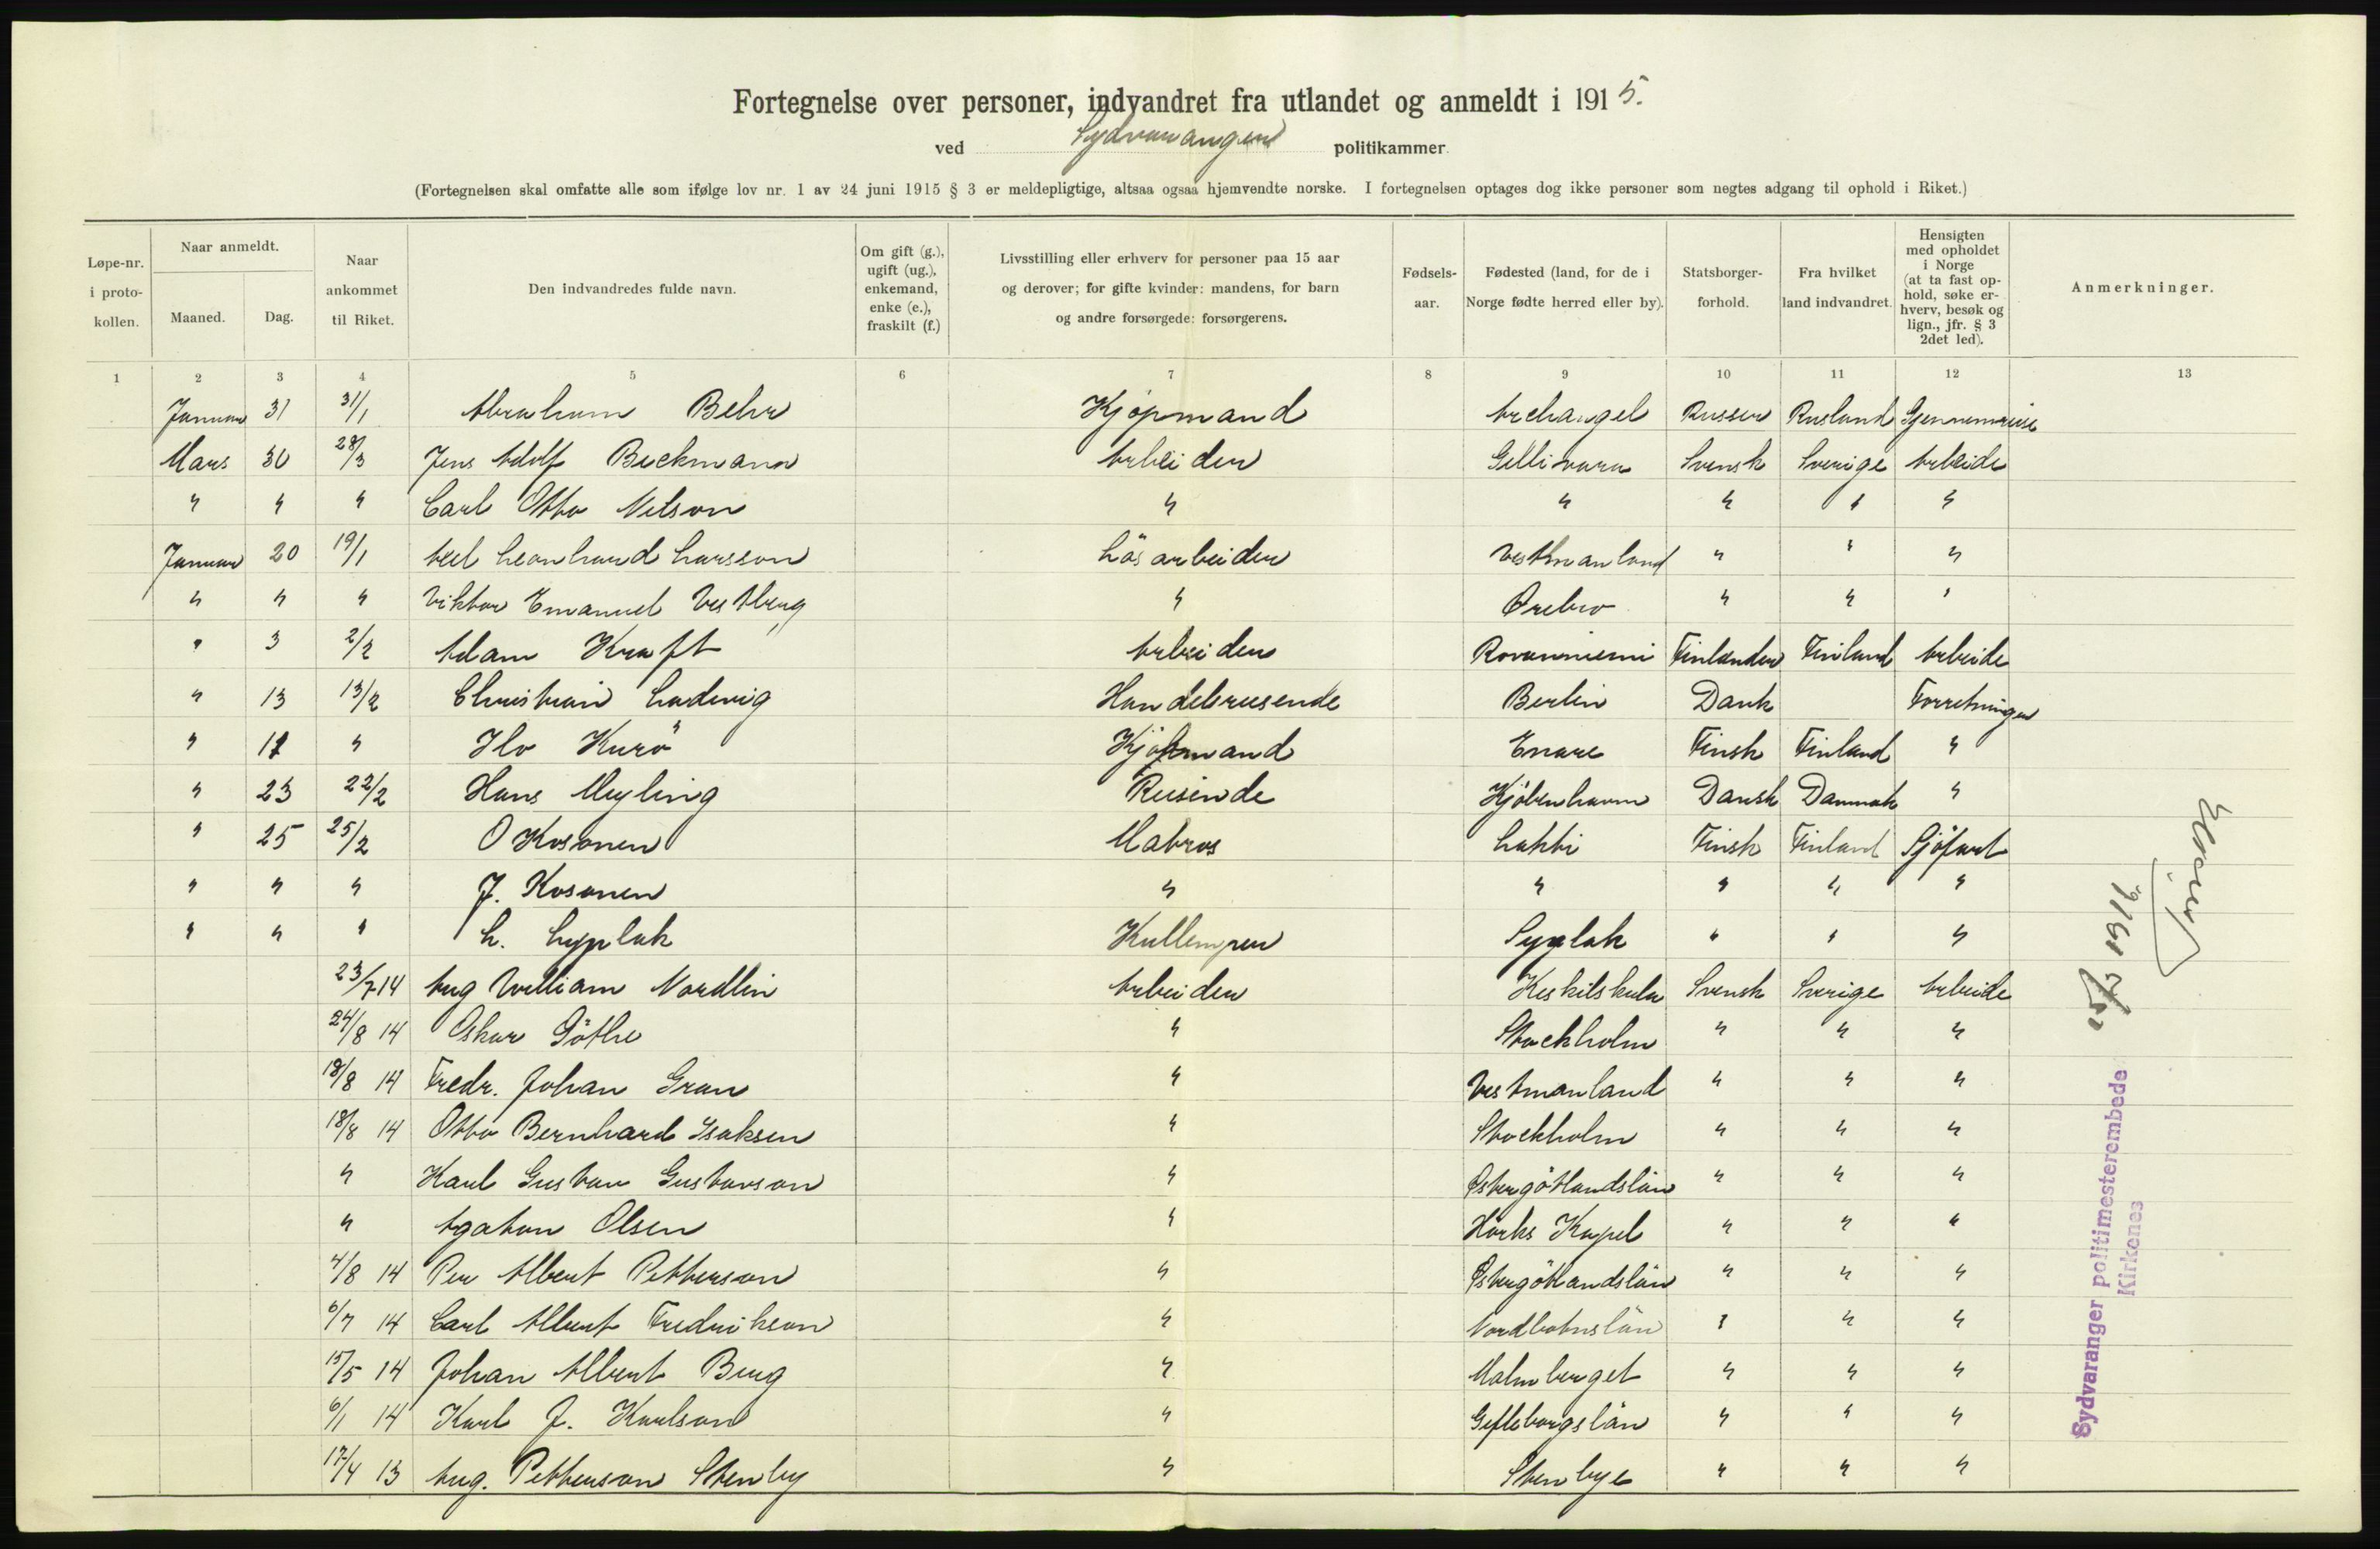 Fortegnelse over personer, indvandret fra utlandet og anmeldt i 1915.
ved Sydvaranger politikammer
(Fortegnelsen skal omfatte alle som ifølge lov nr. 1 av 24 juni 1915 § 3 er meldepligtige, altsaa ogsaa hjemvendte norske. I fortegnelsen optages dog ikke personer som negtes adgang til ophold i Riket.)
Løpe-nr. i proto- kollen.
Naar anmeldt.
Maaned. Dag.
Naar ankommet til Riket.
Den indvandredes fulde navn.
Om gift (g.), ugift (ug.), enkemand, enke (e.), fraskilt (f.)
Livsstilling eller erhverv for personer paa 15 aar og derover; for gifte kvinder: mandens, for barn og andre forsørgede: forsørgerens.
Fødsels- aar.
Fødested (land, for de i Norge fødte herred eller by).
Statsborger- forhold.
Fra hvilket land indvandret.
Hensigten med opholdet i Norge (at ta fast op- hold, søke er- hverv, besøk og lign., jfr. § 3 2det led).
Anmerkninger.
1 2 3 4 5 6 7 8 9 10 11 12 13
Januar 31 31/1 Abraham Behr Kjöpmand Archangel Russer Rusland Gjennemreise
Mars 30 28/3 Jens Adolf Beckmann Arbeider Gellivara Svensk Sverige Arbeide
" " " Carl Otto Nilson " " " " "
Januar 20 19/1 Axel Leonhard Larsson Lösarbeider Vestmanland " " "
" " " Viktor Emanuel Vestberg " Örebro " " "
" 3 2/2 Adam Kraft Arbeider Rovaniemi Finlænder Finland Arbeide
" 13 13/2 Christian Ludvig Handelsreisende Berlin Dansk Forretninger
" 17 " Ilo Kurö Kjöpmand Enare Finsk Finland "
" 23 22/2 Hans Meyling Reisende Kjöbenhavn Dansk Danmark "
" 25 25/2 O Kosonen Matros Lahti Finsk Finland Sjöfart
" " " J. Kosonen " " " " "
" " " " " "
23/7 14 Aug William Nordlin Arbeider Svensk Sverige Arbeide
24/8 14 Oskar Göthe " Stockholm " " "
18/8 14 Fredr. Johan Gran " Vestmanland " " "
18/8 14 Otto Bernhard Isaksen " Stockholm " " "
" Karl Gustav Gustavson " Östergötlandslän " " "
" Agaton Olsen " Hörks Kapel " " "
4/8 14 Per Albert Petterson " Östergötlandslän " " "
6/7 14 Carl Albert Fredrikson " Nordbotnslän " " "
15/5 14 Johan Albert Berg " Malmberget " " "
6/1 14 Karl J. Karlson " Gefleborgslän " " "
17/4 13 Aug. Petterson Stenby " Stenbye " " "
Sydvaranger politimesterembede
Kirkenes
1916